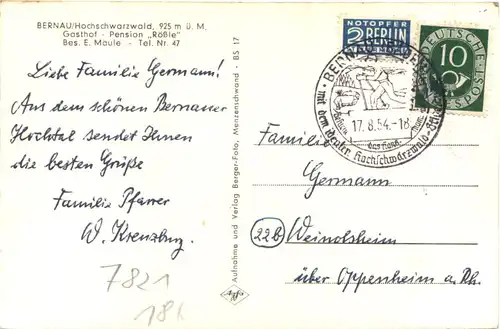 BERNAU/Hochschwarzwald, 925 m ü. M.
Gasthof - Pension „Rößle"
Bes. E. Maule - Tel. Nr. 47
Liebe Familie Germann!
Aus dem schönen Bernauer
Hochtal sendet Ihnen
die besten Grüße
Familie Pfarrer
W. Kreuzburg.
7821
18h
Aufnahme und Verlag Berger-Foto, Menzenschwand - BS 17
Agfa
NOTOPFER
2 BERLIN
STEUERMARKE
DEUTSCHE
10
BUNDESPOST
BERNAU
17.8.54.-18
das Hans-
mit dem idealen Hochschwarzwald-
Familie
Germann
22b Weinolsheim
über Oppenheim a. Rh.